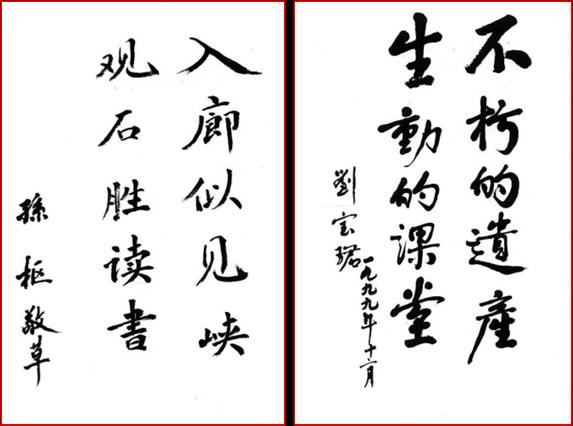 入廊似见峡
观石胜读书
孫枢敬草
不朽的遺產
生動的课堂
劉宝珺
一九九九年十二月